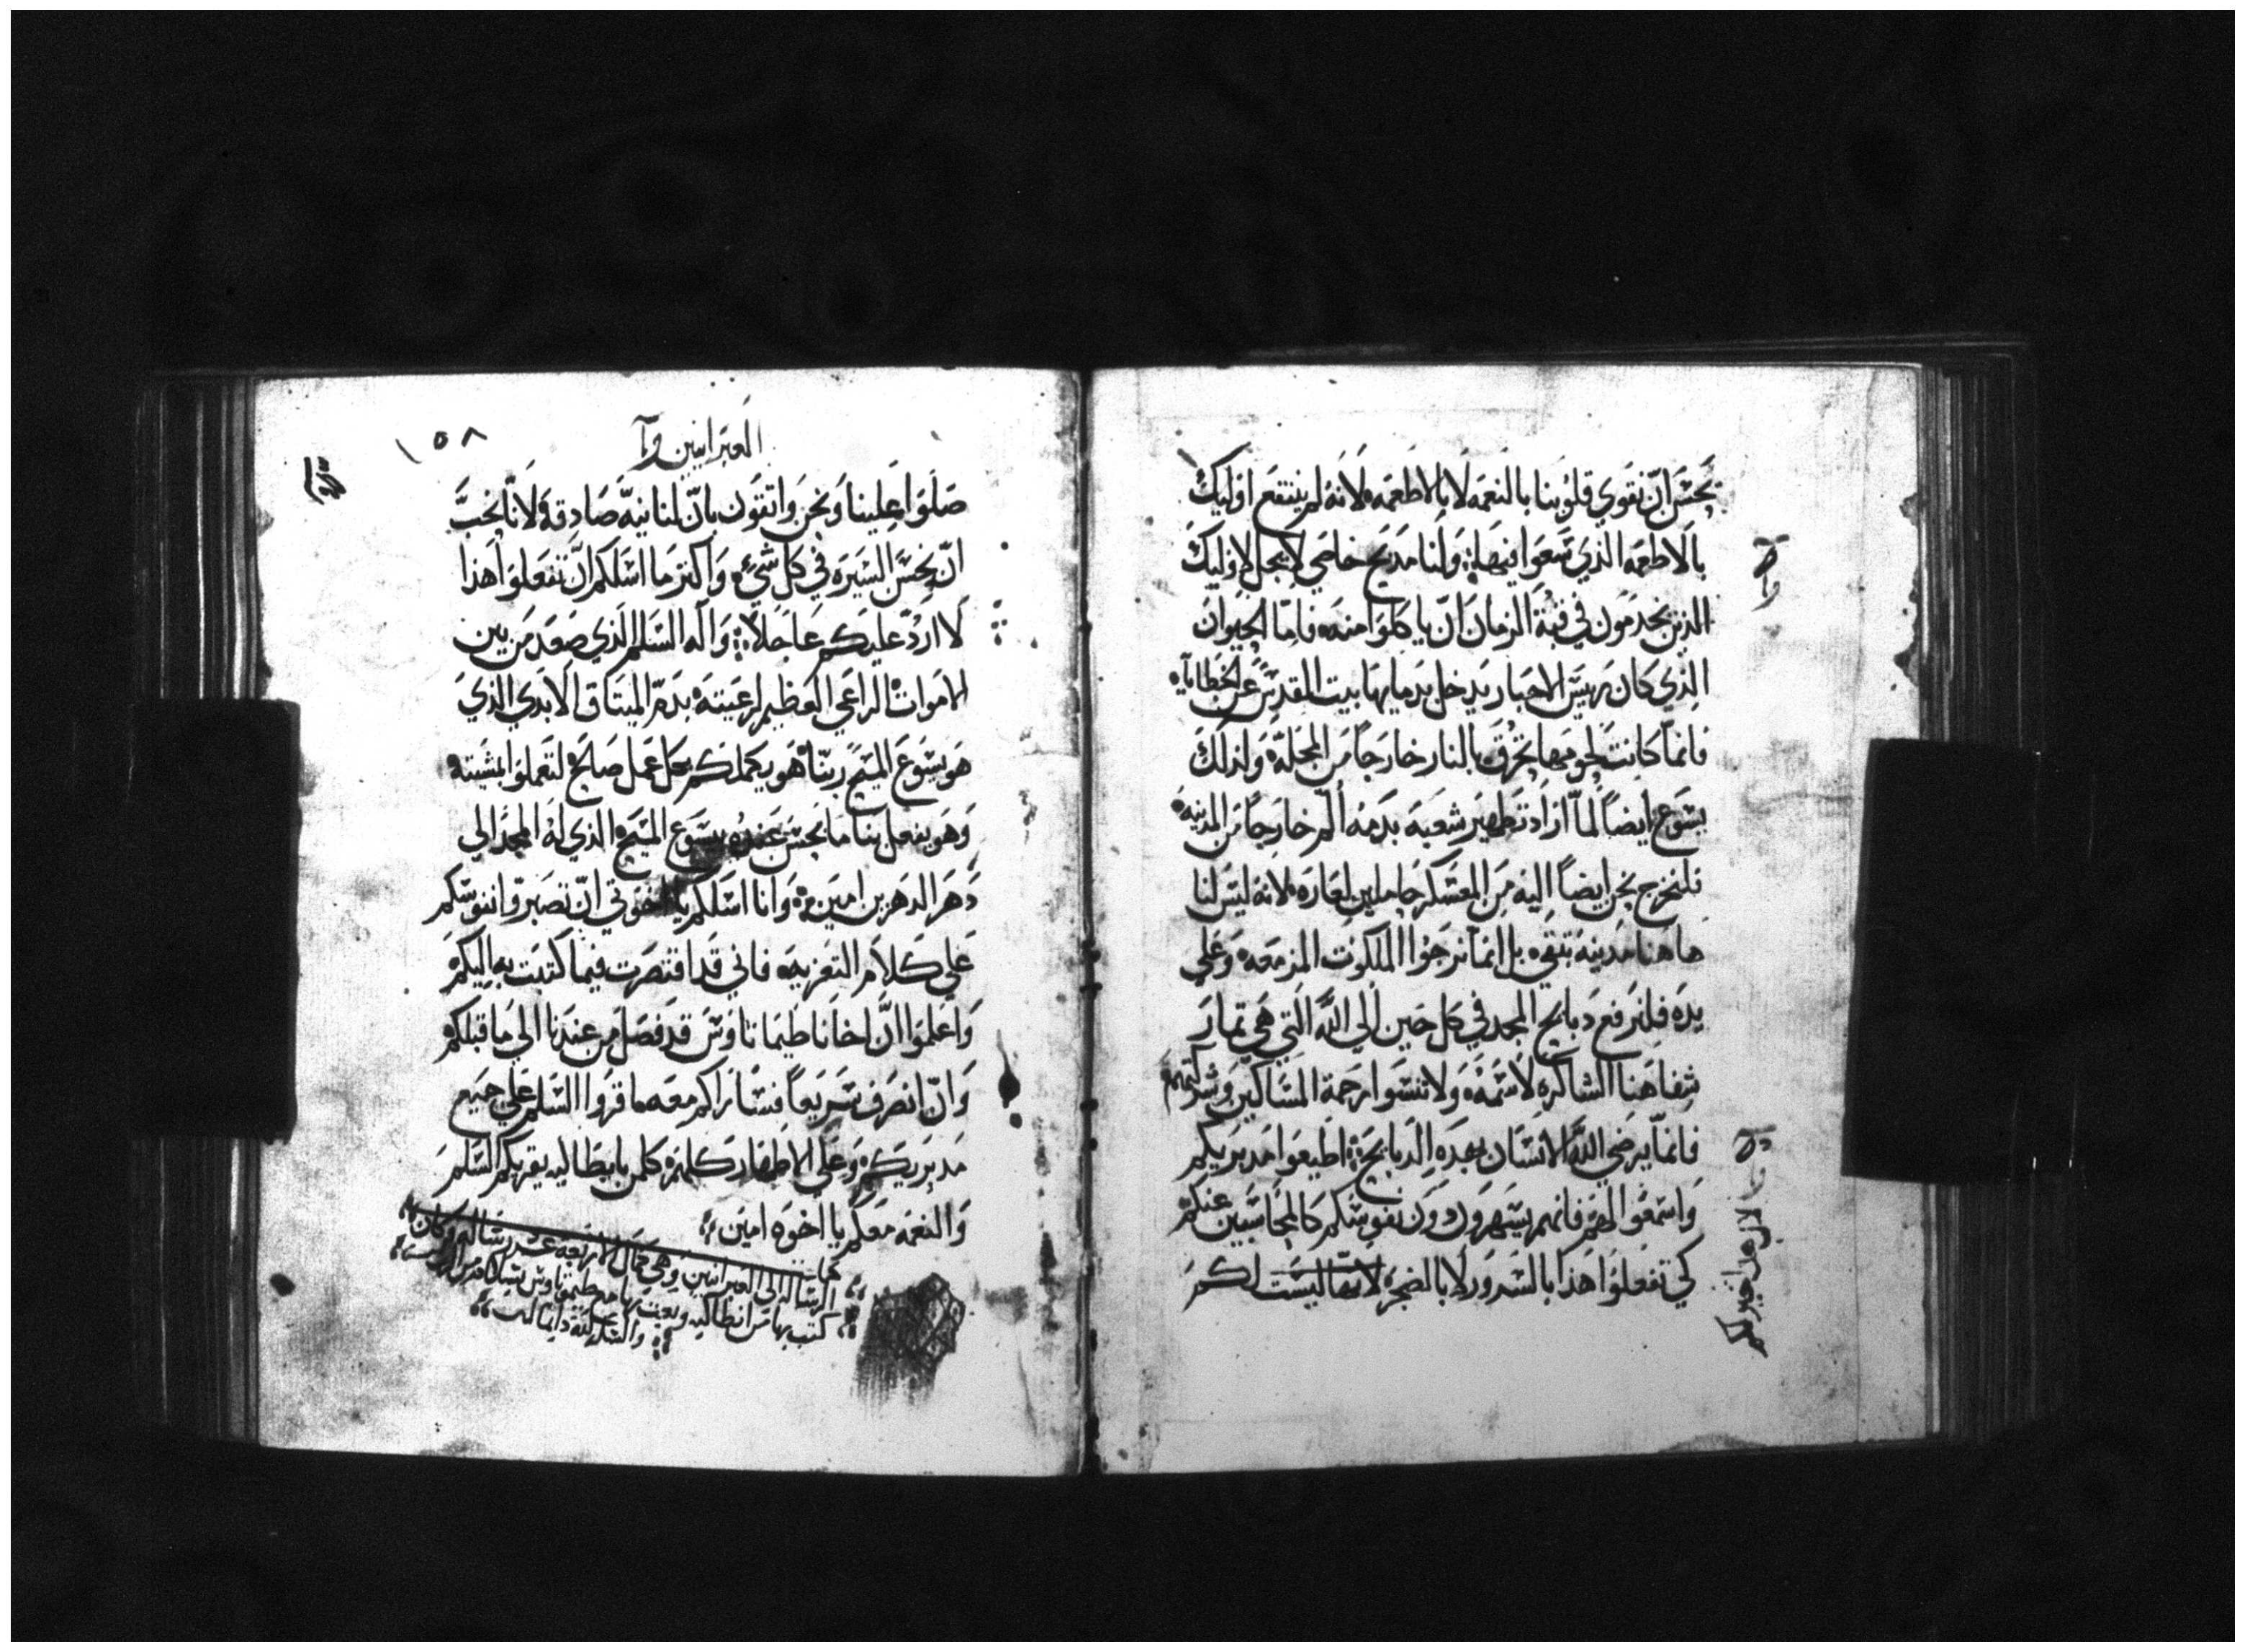 يحسن ان نقوي قلوبنا بالنعمه لا بالاطعمه لانه لم ينتفع اوليك
بالاطعمه الذي سعوا فيها ولنا مدبح خاصي لا يحل لاوليك
الذين يخدمون في قبة الزمان ان ياكلوا منه فاما الحيوان
الذي كان رييس الاحبار يدخل بدمايها بيت المقدس عن الخطايا
فانما كانت لحومها تحرق بالنار خارجا من المحلة ولذلك
يسوع ايضاً لما اراد تطهير شعبه بدمه الم خارجاً من المدينة
فلنخرج نحن ايضاً اليه من المعسكر حاملين لعاره لانه ليس لنا
هاهنا مدينه تبقي بل انما نرجوا الملكوت المزمعه وعلي
يده فلنرفع دبايح المجد في كل حين الي الله التي هي تمار
شفاهنا الشاكره لاسمه ولا تنسوا رحمة المساكين وشركتهم
فانما يرضي الله الانسان بهده الدبايح اطيعوا مدبريكم
واسمعوا لهم فانهم يسهرون دون نفوسكم كالمحاسبين عنكم
كي تفعلوا هذا بالسرور لا بالضجر لانها ليست لكم
العبرانيين
١٥٨
صلوا علينا ونحن واتقون بان لنا نية صادقة لانا نحب
ان نحسن السيره في كل شيء واكتر ما اسلكم ان تفعلوا هذا
لا ارد عليكم عاجلا واله السلم الذي صعد من بين
الاموات الراعي العظيم لرعيته بدم الميتاق الابدي الذي
هو يسوع المسيح ربنا هو يكملكم بكل عمل صالح لتعملوا بمشيته
وهو يفعل بنا ما يحسن عنده بيسوع المسيح الذي له المجد الي
دهر الدهرين امين وانا اسلكم يا اخوتي ان تصبروا نفوسكم
علي كلام التعزيه فاني قد اقتصرت فيما كتبت به اليكم
واعلموا ان اخانا طيماتاوس قد فصل من عندنا الي ما قبلكم
وان انصرف سريعاً فساراكم معه اقروا السلم علي جميع
مدبريكم وعلي الاطهار كلهم كلمن بايطاليه يقريكم السلم
والنعمه معكم يا اخوه امين
الرساله الي العبرانيين وهي كمال الاربعة عشر رساله وكان
كتب بها من انطاكيه وبعت بها مع طيمتاوس
دايما